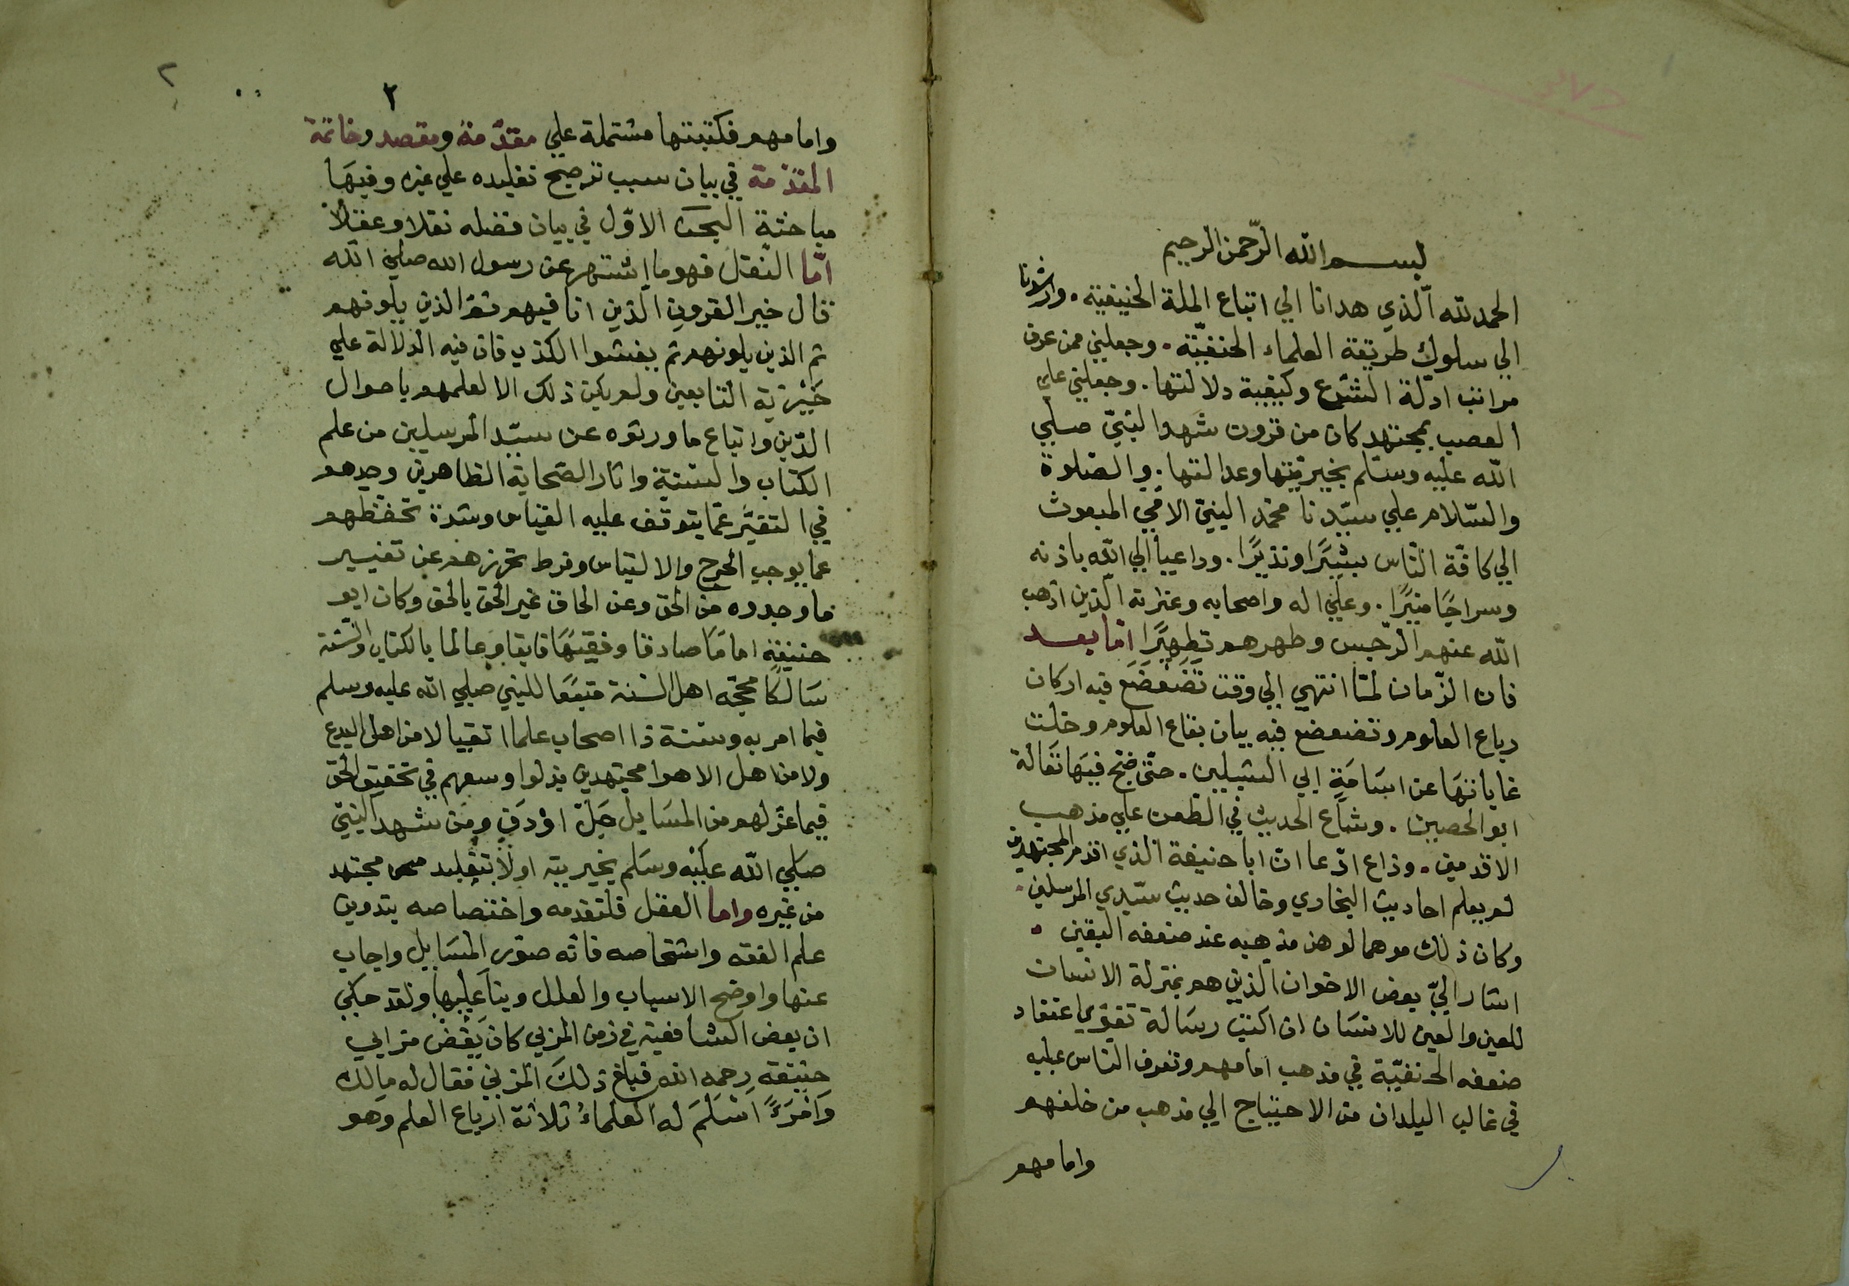 بسم الله الرحمن الرحيم
الحمد لله الذي هدانا الي اتباع الملة الحنيفية. وارشدنا
الي سلوك طريقة العلماء الحنفيّة. وجعلني ممن عرف
مراتب ادلّة الشرع وكيفية دلالتها. وجعلني علي
بمجتهد كان من قرون شهد النبيّ صلي
الله عليه وسلم بخيريّتها وعدالتها. والصلوة
والسّلام علي سيّدنا محمّد النبيّ الامّي المبعوث
الي كافّة النّاس بشيرًا ونذيرًا. وداعيا الي الله باذنه
وسراجًا منيرًا. وعلي اله واصحابه وعترته الّذين اذهب
الله عنهم الرّجس وطهرهم تطهيرًا امّا بعد
فان الزّمان لمّا انتهي الي وقت تَضَعْضَعَ فيه اركان
رباع العلوم وتضعضع فيه بيان بقاع العلوم وخلت
غاياتهَا عن اسَامَةٍ الي الشبلين. حتّي ضبح فيهَا ثعالة
ابو الحصين. وشاع الحديث في الطعن علي مذهب
الاقدمين. وذاع ادّعا انّ ابا حنيفة الذي اقدم المجتهدين
لم يعلم احاديث البخاري وخالف حديث سيّدي المرسلين.
وكان ذلك موهما لوهن مذهبه عند ضعفه اليقين.
اشار اليّ بعض الاخوان الّذين هم بمنزلة الانسان
للعين والعين للانسَان ان اكتب رسَالة تقوّي اعتقاد
ضعفه الحنفيّة في مذهب امامهم وتعرف الناس عليه
في غالب البلدان من الاحتياج الي مذهب من خلفهم
وامامهم
٢
٢
وامامهم فكتبتها مشتملة علي مقدّمة ومقصد وخاتمة
المقدّمة في بيان سبب ترجيح تقليده علي غيره وفيهَا
مباحثة البحث الاوّل في بيان فضله نقلا وعقلاً
امّا النّقل فهو ما اشتهر عن رسول الله صلي الله
قال خير القرون الّذين انا فيهم ثمّ الذين يلونهم
ثم الذين يلونهم ثم يفشوا الكذب فان فيه الدّلالة علي
خَيْريّة التابعين ولم يكن ذلك الا لعلمهم باحوال
الدّين واتباع ما ورثوه عن سيّد المرسلين من علم
الكتاب والسّنّة واثار الصّحابة الطاهرين وجدهم
في عمّا يتوقف عليه القياس وشدة تحفّظهم
عما يوجب الحرج والالتباس وفرط تحرزهم عن تغيير
ما وجدوه من الحق وعن الحاق غير الحق بالحق وكان ابو
حنيفة امامًا صادقا وفقيهًا فايقا وعالما بالكتاب والسّنّة
سَالكًا محجّة اهل السّنة متبعًا للنبي صلي الله عليه وسلم
فيما امر به وسنّة ذا اصحاب علما اتقيا لا من اهل البدع
ولا من اهل الاهوا مجتهدين بذلوا وسعهم في تحقيق الحق
فيما عنّ لهم من المسَايل جلّ او دق ومَن شهد النبيّ
صلي الله عليه وسَلم بخيريته اولاً بتقليد مجتهد
من غيره واما العقل فلتقدمه واختصاصه بتدوين
علم الفقه فانّه صوّر المسَايل واجاب
عنها واوضح الاسباب والعلل وبنا عليها ولقد حكي
ان بعض الشافعية في زمن المزني كان يَغضّ من ابي
حنيفة رحمه الله فبلغ ذلك المزني فقال له مالك
وَامْرَءً اسَلَمَ له العلماءُ ثلاثة ارباع العلم وهو